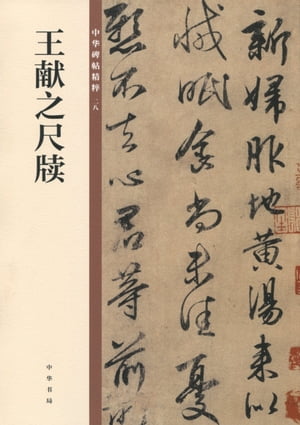 王献之尺牍
中华碑帖精粹 二八
中华书局
新婦服地黄湯来似
減眠食尚未佳憂
懸不去心君等前